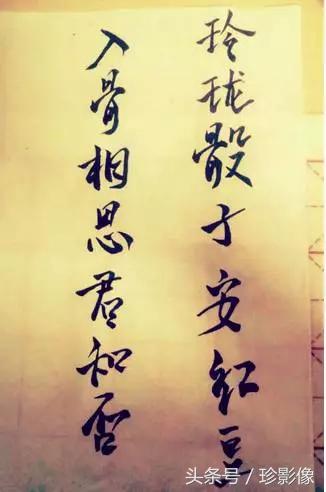 玲珑骰子安红豆
入骨相思君知否
头条号/珍影像